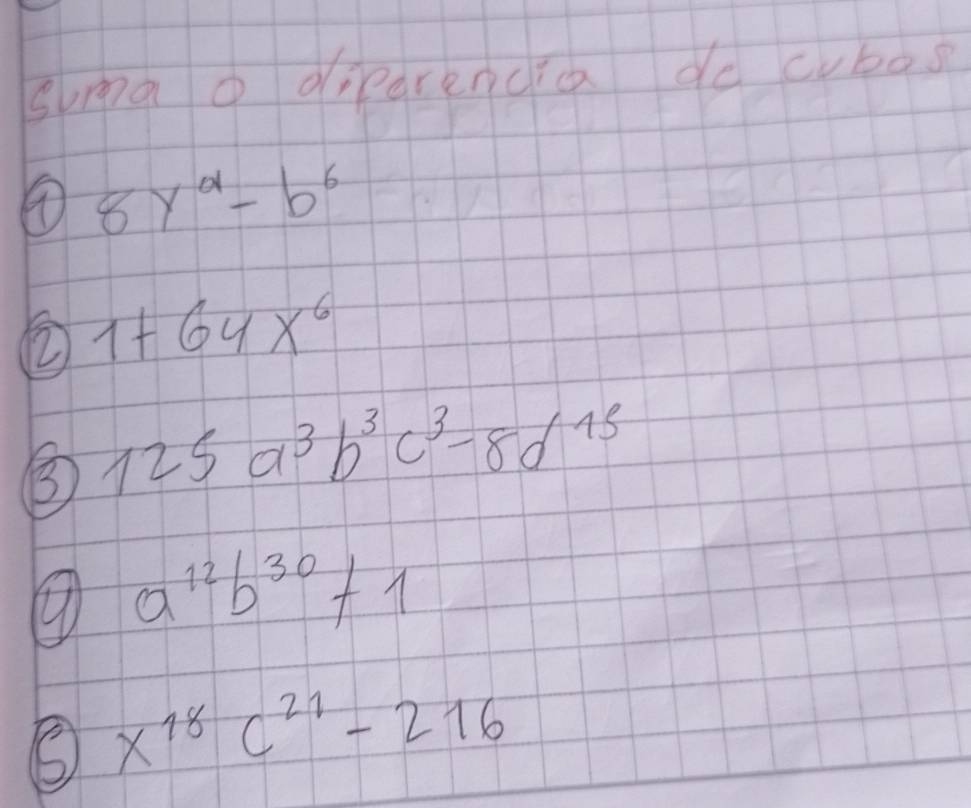 suma o diferencia de cubos
① 8y^a - b^6
② 1 + 64x^6
③ 125 a^3 b^3 c^3 - 8d^15
④ a^12 b^30 + 1
⑤ x^18 c^21 - 216